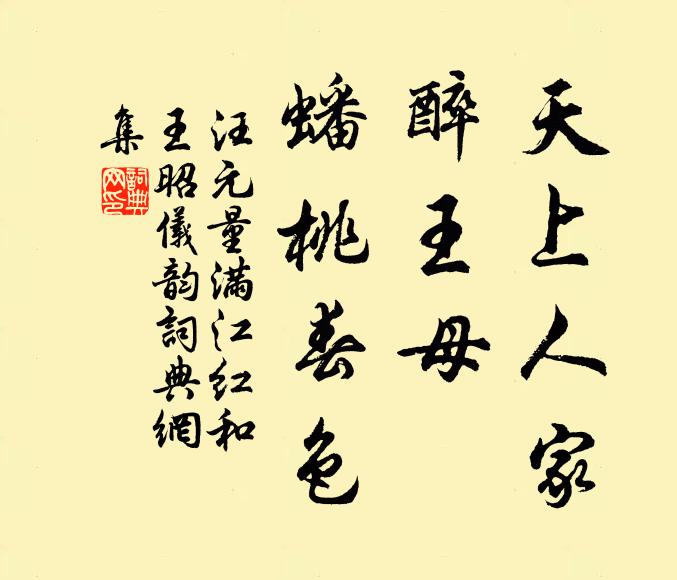 天上人家
醉王母
蟠桃春色
汪元量满江红和
王昭儀韵詞典網
集
詞典
网印